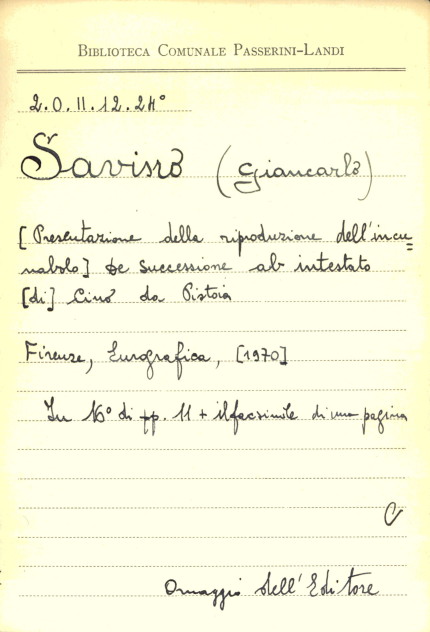 BIBLIOTECA COMUNALE PASSERINI-LANDI
2.O.II.12.24°
Savino (Giancarlo)
[Presentazione della riproduzione dell'incu=
nabolo] De successione ab intestato
[di] Cino da Pistoia
Firenze, Eurografica, [1970]
In 16° di pp. 11 + il facsimile di una pagina
C
Omaggio dell'Editore